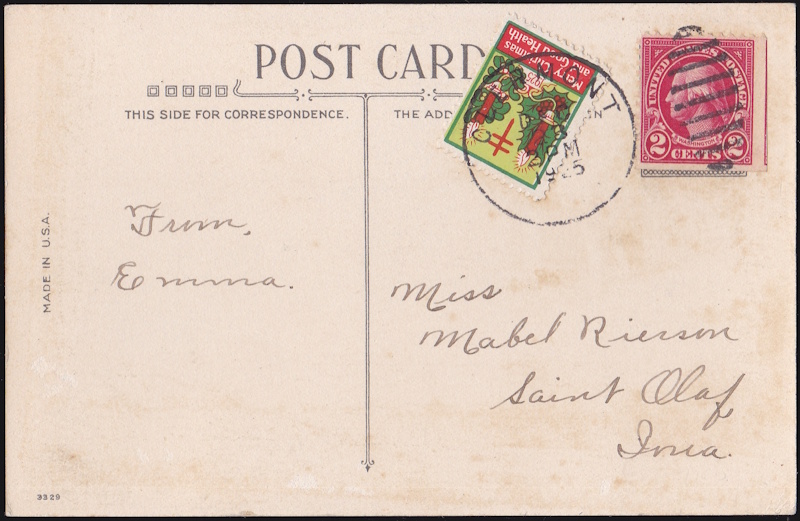 POST CARD
THIS SIDE FOR CORRESPONDENCE.
THE ADD
Merry Christmas
and Good Health
1925
M
1925
UNITED STATES POSTAGE
WASHINGTON
2 CENTS 2
MADE IN U.S.A.
From,
Emma.
Miss
Mabel Rierson
Saint Olaf
Iowa.
3329